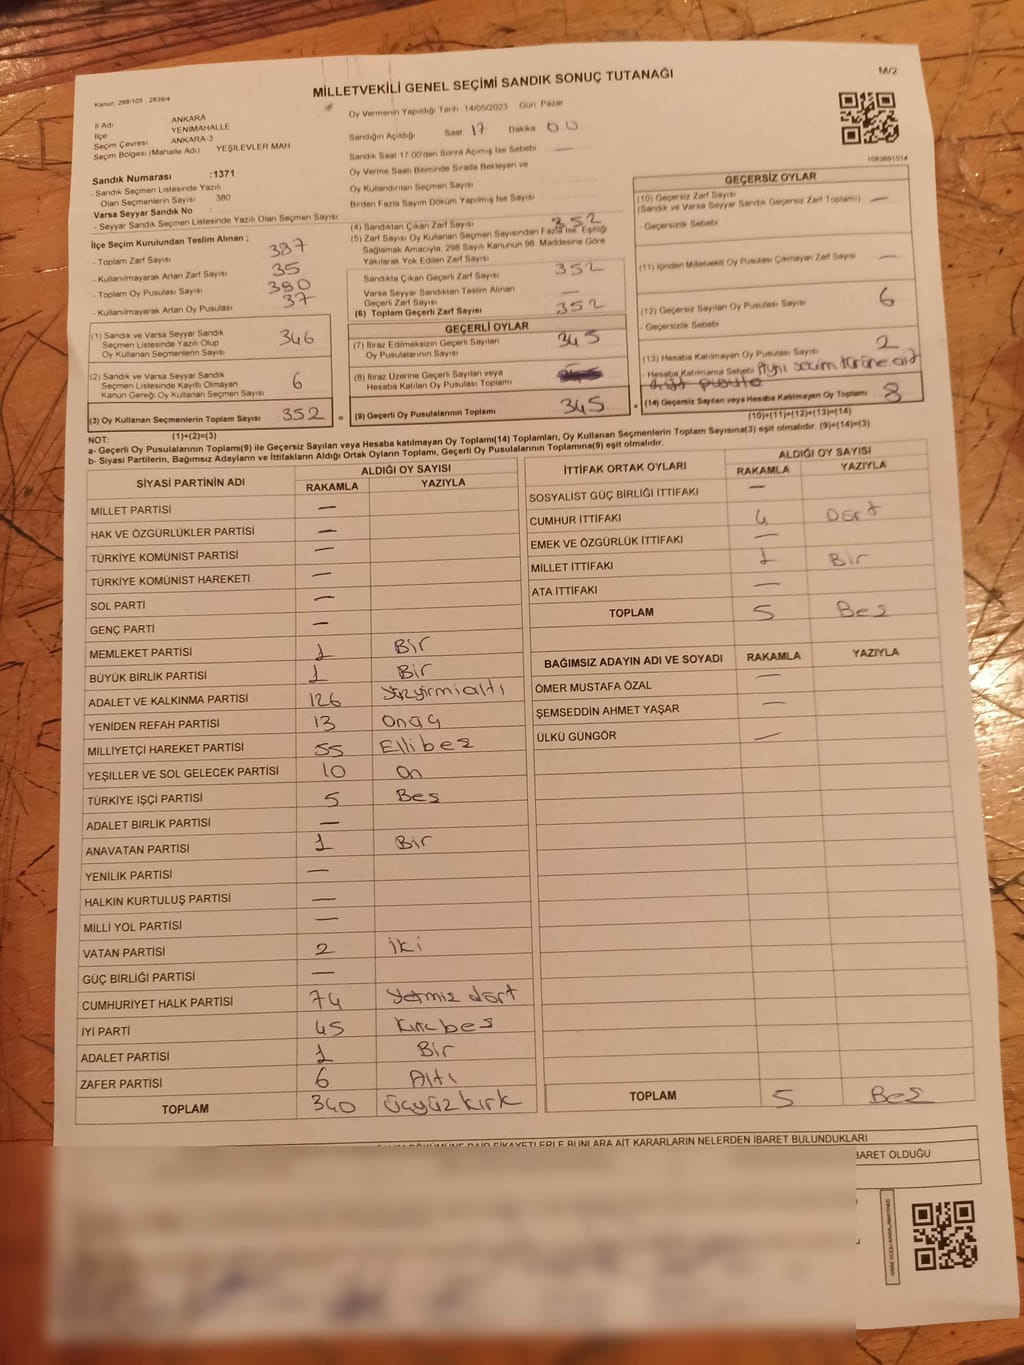 M/2
MİLLETVEKİLİ GENEL SEÇİMİ SANDIK SONUÇ TUTANAĞI
Kanun: 298/105 , 2839/4
İl Adı ANKARA
İlçe YENİMAHALLE
Seçim Çevresi ANKARA-3
Seçim Bölgesi (Mahalle Adı) YEŞİLEVLER MAH.
Sandık Numarası :1371
- Sandık Seçmen Listesinde Yazılı
Olan Seçmenlerin Sayısı 380
Varsa Seyyar Sandık No :
- Seyyar Sandık Seçmen Listesinde Yazılı Olan Seçmen Sayısı
İlçe Seçim Kurulundan Teslim Alınan ;
- Toplam Zarf Sayısı 387
- Kullanılmayarak Artan Zarf Sayısı 35
- Toplam Oy Pusulası Sayısı 380
- Kullanılmayarak Artan Oy Pusulası 37
(1) Sandık ve Varsa Seyyar Sandık
Seçmen Listesinde Yazılı Olup
Oy Kullanan Seçmenlerin Sayısı 346
(2) Sandık ve Varsa Seyyar Sandık
Seçmen Listesinde Kayıtlı Olmayan
Kanun Gereği Oy Kullanan Seçmen Sayısı 6
(3) Oy Kullanan Seçmenlerin Toplam Sayısı 352 =
(1)+(2)=(3)
Oy Vermenin Yapıldığı Tarih : 14/05/2023 Gün: Pazar
Sandığın Açıldığı Saat 17 Dakika 00
Sandık Saat 17:00'den Sonra Açmış İse Sebebi —
Oy Verme Saati Bitiminde Sırada Bekleyen ve
Oy Kullandırılan Seçmen Sayısı —
Birden Fazla Sayım Döküm Yapılmış İse Sayısı
(4) Sandıktan Çıkan Zarf Sayısı 352
(5) Zarf Sayısı Oy Kullanan Seçmen Sayısından Fazla İse, Eşitliği
Sağlamak Amacıyla, 298 Sayılı Kanunun 98. Maddesine Göre
Yakılarak Yok Edilen Zarf Sayısı
Sandıkta Çıkan Geçerli Zarf Sayısı 352
Varsa Seyyar Sandıktan Teslim Alınan
Geçerli Zarf Sayısı —
(6) Toplam Geçerli Zarf Sayısı 352
GEÇERLİ OYLAR
(7) İtiraz Edilmeksizin Geçerli Sayılan
Oy Pusulalarının Sayısı 345
(8) İtiraz Üzerine Geçerli Sayılan veya
Hesaba Katılan Oy Pusulası Toplamı
(9) Geçerli Oy Pusulalarının Toplamı 345 +
1083691514
GEÇERSİZ OYLAR
(10) Geçersiz Zarf Sayısı
(Sandık ve Varsa Seyyar Sandık Geçersiz Zarf Toplamı) —
- Geçersizlik Sebebi
(11) İçinden Milletvekili Oy Pusulası Çıkmayan Zarf Sayısı —
(12) Geçersiz Sayılan Oy Pusulası Sayısı 6
- Geçersizlik Sebebi
(13) Hesaba Katılmayan Oy Pusulası Sayısı 2
- Hesaba Katılmama Sebebi Aynı seçim türüne ait
pusula
(14) Geçersiz Sayılan veya Hesaba Katılmayan Oy Toplamı 8
(10)+(11)+(12)+(13)=(14)
NOT:
a- Geçerli Oy Pusulalarının Toplamı(9) ile Geçersiz Sayılan veya Hesaba katılmayan Oy Toplamı(14) Toplamları, Oy Kullanan Seçmenlerin Toplam Sayısına(3) eşit olmalıdır. (9)+(14)=(3)
b- Siyasi Partilerin, Bağımsız Adayların ve İttifakların Aldığı Ortak Oyların Toplamı, Geçerli Oy Pusulalarının Toplamına(9) eşit olmalıdır.
SİYASİ PARTİNİN ADI ALDIĞI OY SAYISI
RAKAMLA YAZIYLA
MİLLET PARTİSİ —
HAK VE ÖZGÜRLÜKLER PARTİSİ —
TÜRKİYE KOMÜNİST PARTİSİ —
TÜRKİYE KOMÜNİST HAREKETİ —
SOL PARTİ —
GENÇ PARTİ —
MEMLEKET PARTİSİ 1 Bir
BÜYÜK BİRLİK PARTİSİ 1 Bir
ADALET VE KALKINMA PARTİSİ 126 Yüzyirmialtı
YENİDEN REFAH PARTİSİ 13 Onüç
MİLLİYETÇİ HAREKET PARTİSİ 55 Ellibeş
YEŞİLLER VE SOL GELECEK PARTİSİ 10 On
TÜRKİYE İŞÇİ PARTİSİ 5 Beş
ADALET BİRLİK PARTİSİ —
ANAVATAN PARTİSİ 1 Bir
YENİLİK PARTİSİ —
HALKIN KURTULUŞ PARTİSİ —
MİLLİ YOL PARTİSİ —
VATAN PARTİSİ 2 İki
GÜÇ BİRLİĞİ PARTİSİ —
CUMHURİYET HALK PARTİSİ 74 Yetmiş dört
İYİ PARTİ 45 Kırkbeş
ADALET PARTİSİ 1 Bir
ZAFER PARTİSİ 6 Altı
TOPLAM 340 Üçyüzkırk
İTTİFAK ORTAK OYLARI ALDIĞI OY SAYISI
RAKAMLA YAZIYLA
SOSYALİST GÜÇ BİRLİĞİ İTTİFAKI —
CUMHUR İTTİFAKI 4 Dört
EMEK VE ÖZGÜRLÜK İTTİFAKI —
MİLLET İTTİFAKI 1 Bir
ATA İTTİFAKI —
TOPLAM 5 Beş
BAĞIMSIZ ADAYIN ADI VE SOYADI RAKAMLA YAZIYLA
ÖMER MUSTAFA ÖZAL —
ŞEMSEDDİN AHMET YAŞAR —
ÜLKÜ GÜNGÖR —
TOPLAM 5 Beş
DÖKÜMÜNE DAİR ŞİKAYETLERLE BUNLARA AİT KARARLARIN NELERDEN İBARET BULUNDUKLARI
İBARET OLDUĞU